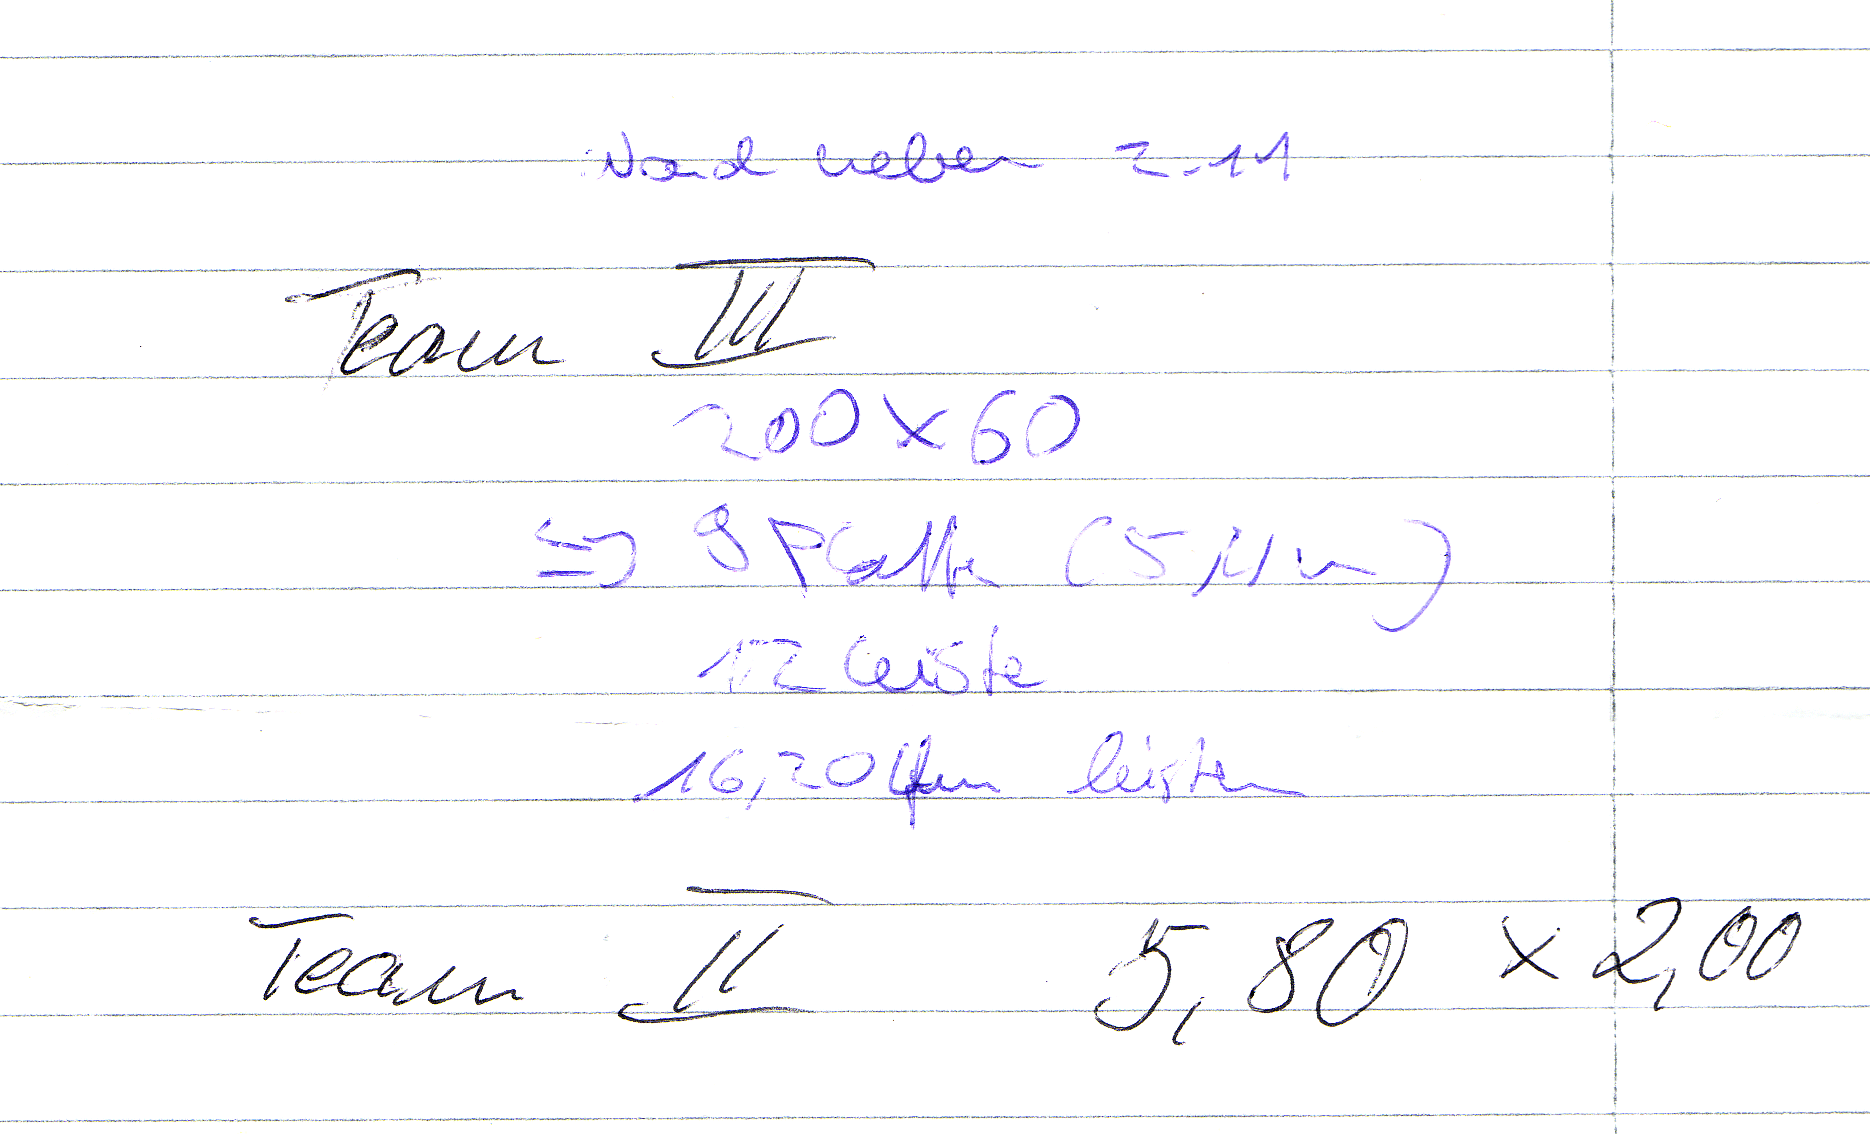 Wand neben 2.11
Team III
200 x 60
=> 9 Platte (5 lfm)
12 leiste
16,20 lfm leisten
Team II 5,80 x 2,00